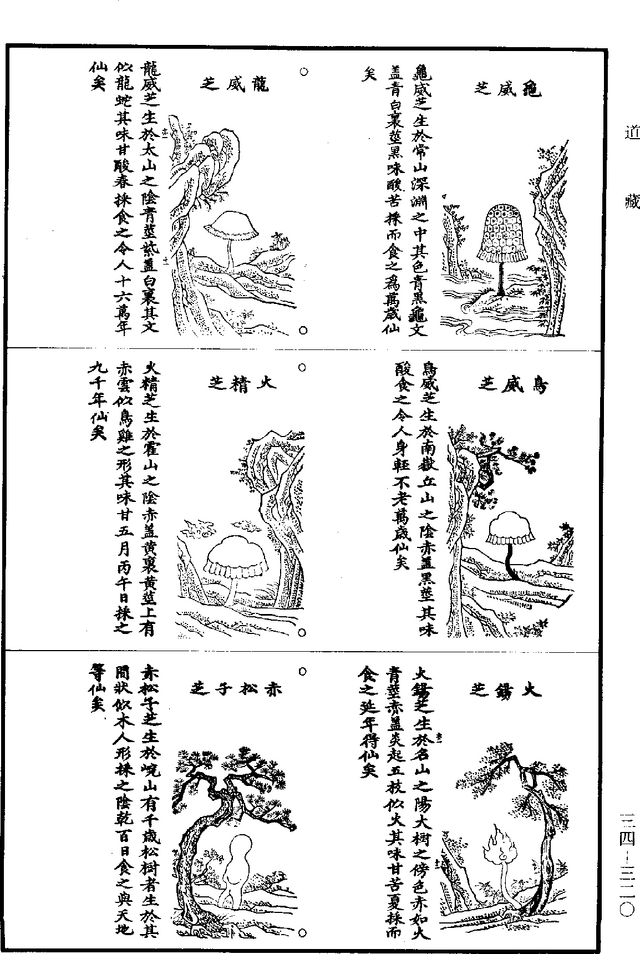 道藏
龜威芝
龜威芝生於常山深淵之中其色青黑龜文
蓋青白裏莖黑味酸苦採而食之為萬歲仙
矣
龍威芝
龍威芝生於太山之陰青莖紫蓋白裏其文
似龍蛇其味甘酸春採食之令人十六萬年
仙矣
鳥威芝
鳥威芝生於南嶽丘山之陰赤蓋黑莖其味
酸食之令人身輕不老萬歲仙矣
火精芝
火精芝生於霍山之陰赤蓋黃裏黃莖上有
赤雲似鳥雞之形其味甘五月丙午日採之
九千年仙矣
火錫芝
火錫芝生於名山之陽大樹之傍色赤如火
青莖赤蓋炎起五枝似火其味甘苦夏採而
食之延年得仙矣
赤松子芝
赤松子芝生於崆山有千歲松樹者生於其
間狀似木人形採之陰乾百日食之與天地
等仙矣
三四—三二〇